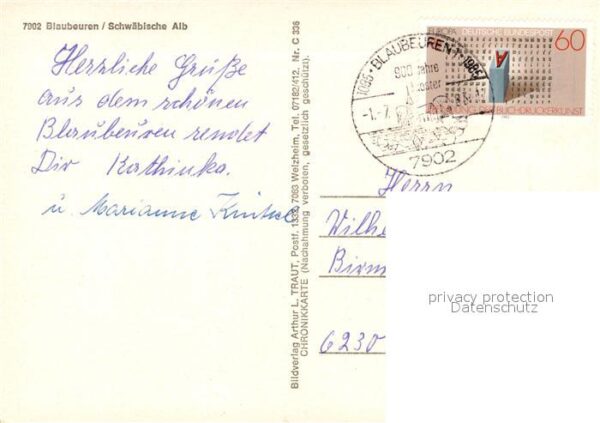 7902 Blaubeuren / Schwäbische Alb
Herzliche Grüße
aus dem schönen
Blaubeuren sendet
Dir Kathinka.
u. Marianne
Bildverlag Arthur L. TRAUT, Postf. 1332, 7063 Welzheim, Tel. 07182/412, Nr. C 336
CHRONIKKARTE (Nachahmung verboten, gesetzlich geschützt).
EUROPA DEUTSCHE BUNDESPOST
60
BUCHDRUCKERKUNST
1085 · BLAUBEUREN 1 · 1985
900 Jahre
Kloster
-1.-7.
7902
Herrn
Wilhe
Birm
6230
privacy protection
Datenschutz